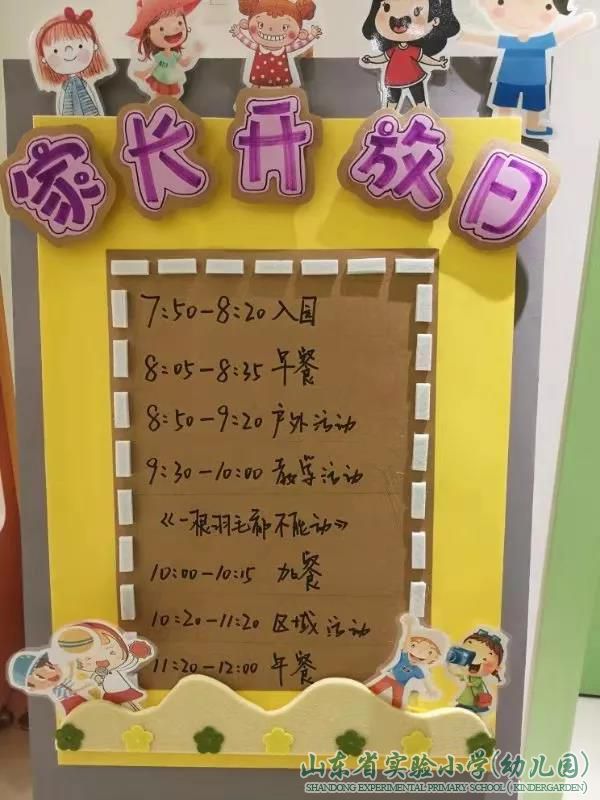 家长开放日
7:50-8:20 入园
8:05-8:35 早餐
8:50-9:20 户外活动
9:30-10:00 教学活动
《一根羽毛都不能动》
10:00-10:15 加餐
10:20-11:20 区域活动
11:20-12:00 午餐
山东省实验小学(幼儿园)
SHANDONG EXPERIMENTAL PRIMARY SCHOOL ( KINDERGARDEN)